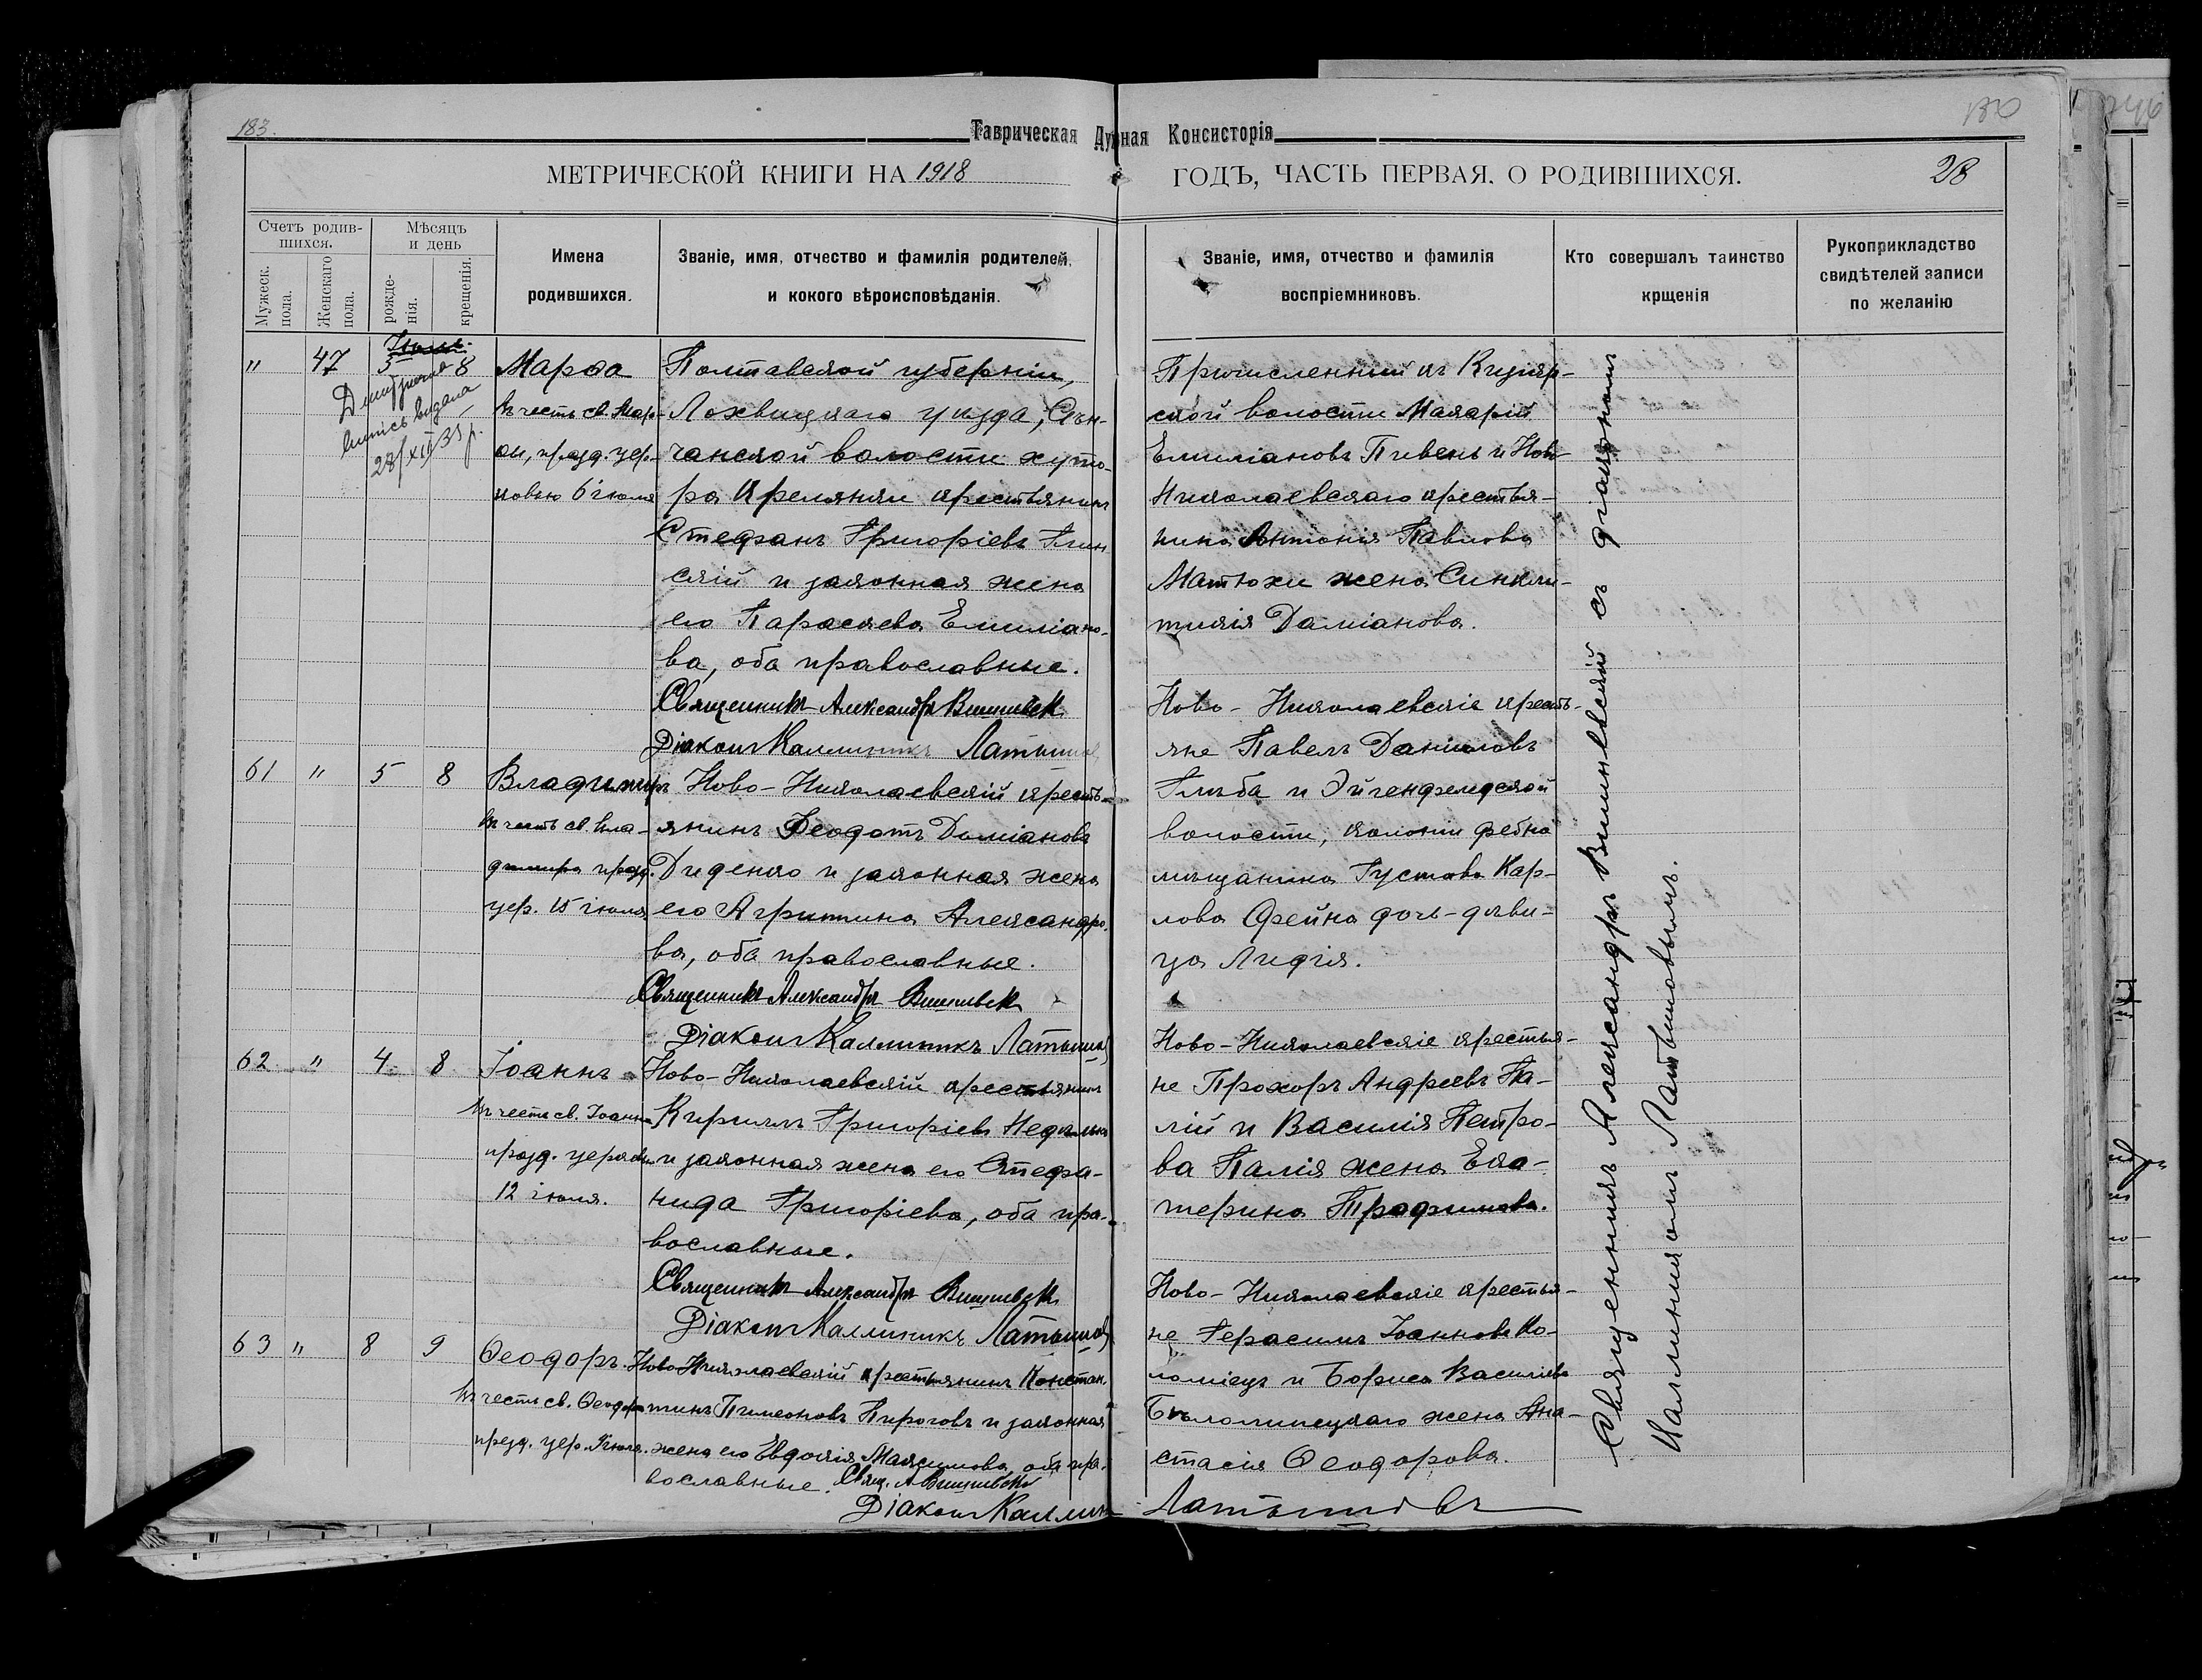 183.
Таврическая Духовная Консисторія
180
МЕТРИЧЕСКОЙ КНИГИ НА 1918
ГОДЪ, ЧАСТЬ ПЕРВАЯ, О РОДИВШИХСЯ.
28
Счетъ родив-
шихся.
Мужеск.
пола.
Женскаго
пола.
Мѣсяцъ
и день
рожде-
нія.
крещенія.
Имена
родившихся.
Званіе, имя, отчество и фамилія родителей,
и кокого вѣроисповѣданія.
Званіе, имя, отчество и фамилія
воспріемниковъ.
Кто совершалъ таинство
крщенія
Рукоприкладство
свидѣтелей записи
по желанію
" 47 5 8
видана
28/XII 35 р.
Марѳа
въ честь св. Мар-
ѳы, празд. цер-
ковью 6 іюля
Полтавской губерніи,
Лохвицкаго уѣзда, Сѣн-
чанской волости хуто-
ра крестьянинъ
Стефанъ Григоріевъ Глин
скій и законная жена
его Параскева Емиліано-
ва, оба православные.
Священникъ Александръ Вишневск
Діаконъ Каллиникъ Латышов
Причисленный къ
ской волости Макарій
Емиліановъ Пивень и Ново
Николаевскаго крестья-
нина Антонія Павлова
Матюхи жена Синкли-
тикія Даміанова.
61 " 5 8
Владимиръ
въ честь св. Вла-
димира празд.
цер. 15 іюля
Ново-Николаевскій кресть-
янинъ Феодотъ Даміановъ
Диденко и законная жена
его Агрипина Александро-
ва, оба православные.
Священникъ Александръ Вишневск
Діаконъ Каллиникъ Латышов
Ново-Николаевскіе кресть-
яне Павелъ Даніиловъ
Глыба и Эйгенфельдской
волости, колоніи
мѣщанина Густава Кар-
лова Фейна дочь-дѣви-
ца Лидія.
62 " 4 8
Іоаннъ
въ честь св. Іоанна
празд. церковью
12 іюля.
Ново-Николаевскій крестьянинъ
Кириллъ Григоріевъ
и законная жена его Стефа-
нида Григоріева, оба пра-
вославные.
Священникъ Александръ Вишневск
Діаконъ Каллиникъ Латышов
Ново-Николаевскіе крестья-
не Прохоръ Андреевъ Па-
лій и Василія Петро-
ва Палія жена Ека-
терина Трофимова.
63 " 8 9
Ѳеодоръ
въ честь св. Ѳеодора
празд. цер. іюля.
Ново-Николаевскій крестьянинъ Констан-
тинъ Пимоновъ Пироговъ и законная
жена его Евдокія Максимова, оба пра-
вославные. Свящ. А Вишневскій
Діаконъ Каллиникъ Латышовъ
Ново-Николаевскіе крестья-
не Герасимъ Іоанновъ Ко-
ломіецъ и Бориса Васильева
Бѣлопипецкаго жена Ана-
стасія Ѳеодорова.
Священникъ Александръ Вишневскій съ діакономъ
Каллиникомъ Латышовымъ.